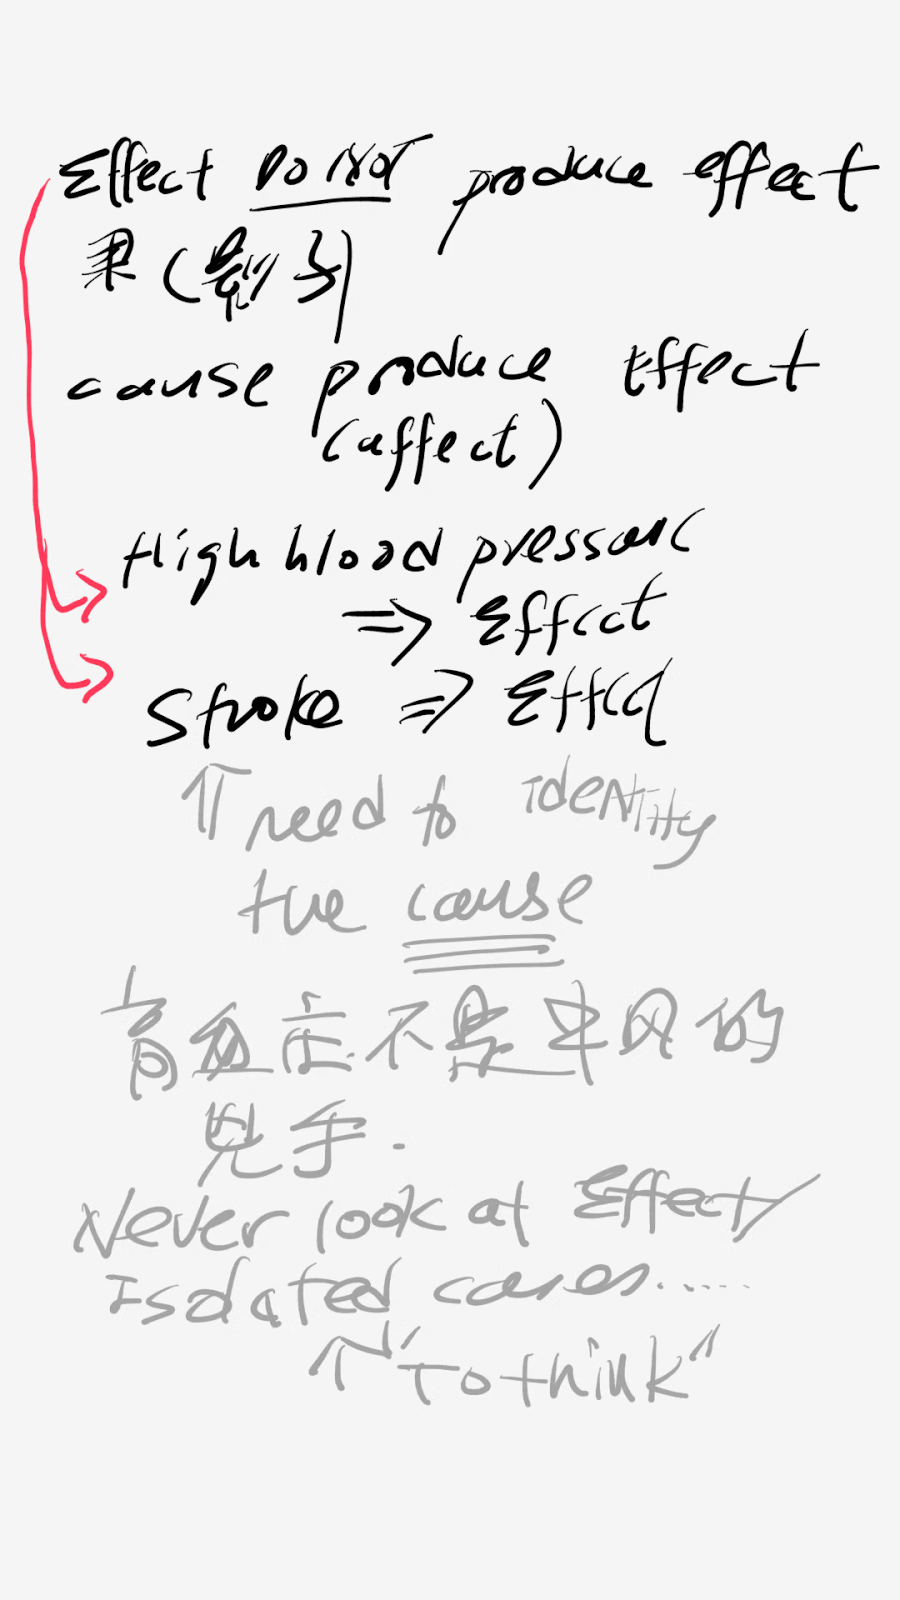 Effect DO NOT produce effect
果(影响)
cause produce Effect
(affect)
High blood pressure
=> Effect
Stroke => Effect
⇑ need to identity
the cause
高血压不是中风的
兇手.
Never look at Effect/
Isolated cases.....
↑ "To think"